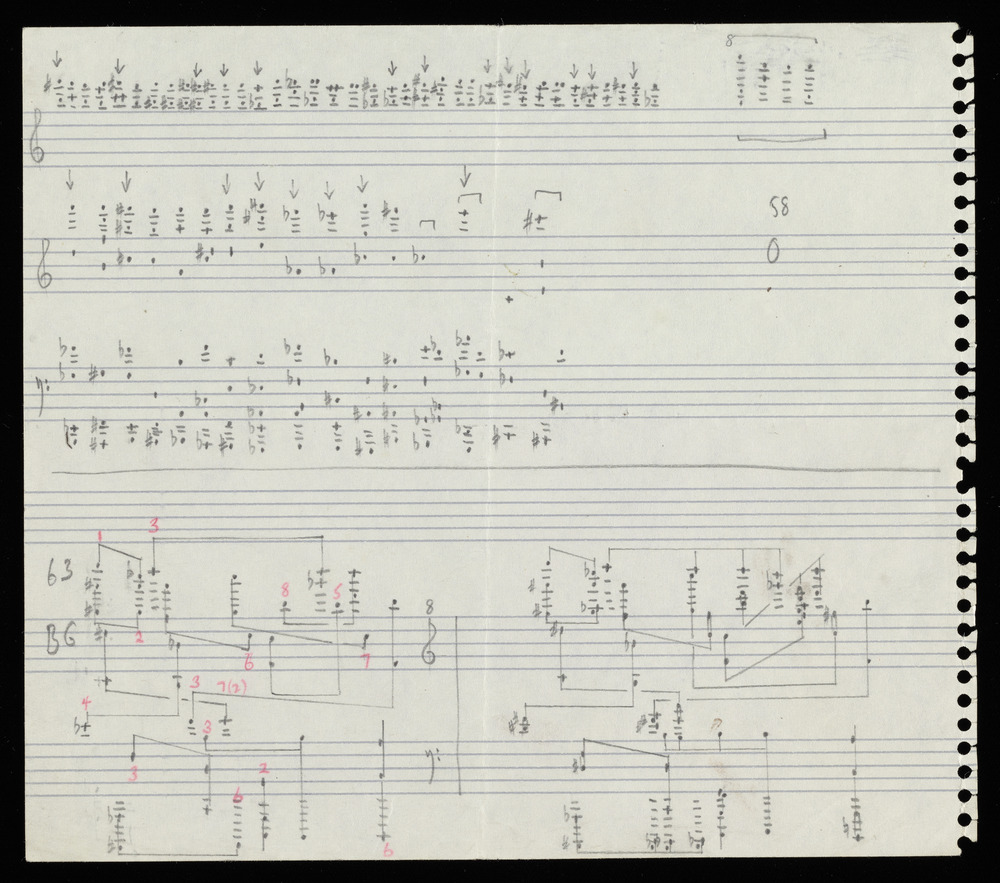 8
58
0
3
1
63
8 5
8
B6
2
6 7
3 7(2)
4
3
3 2
6
6